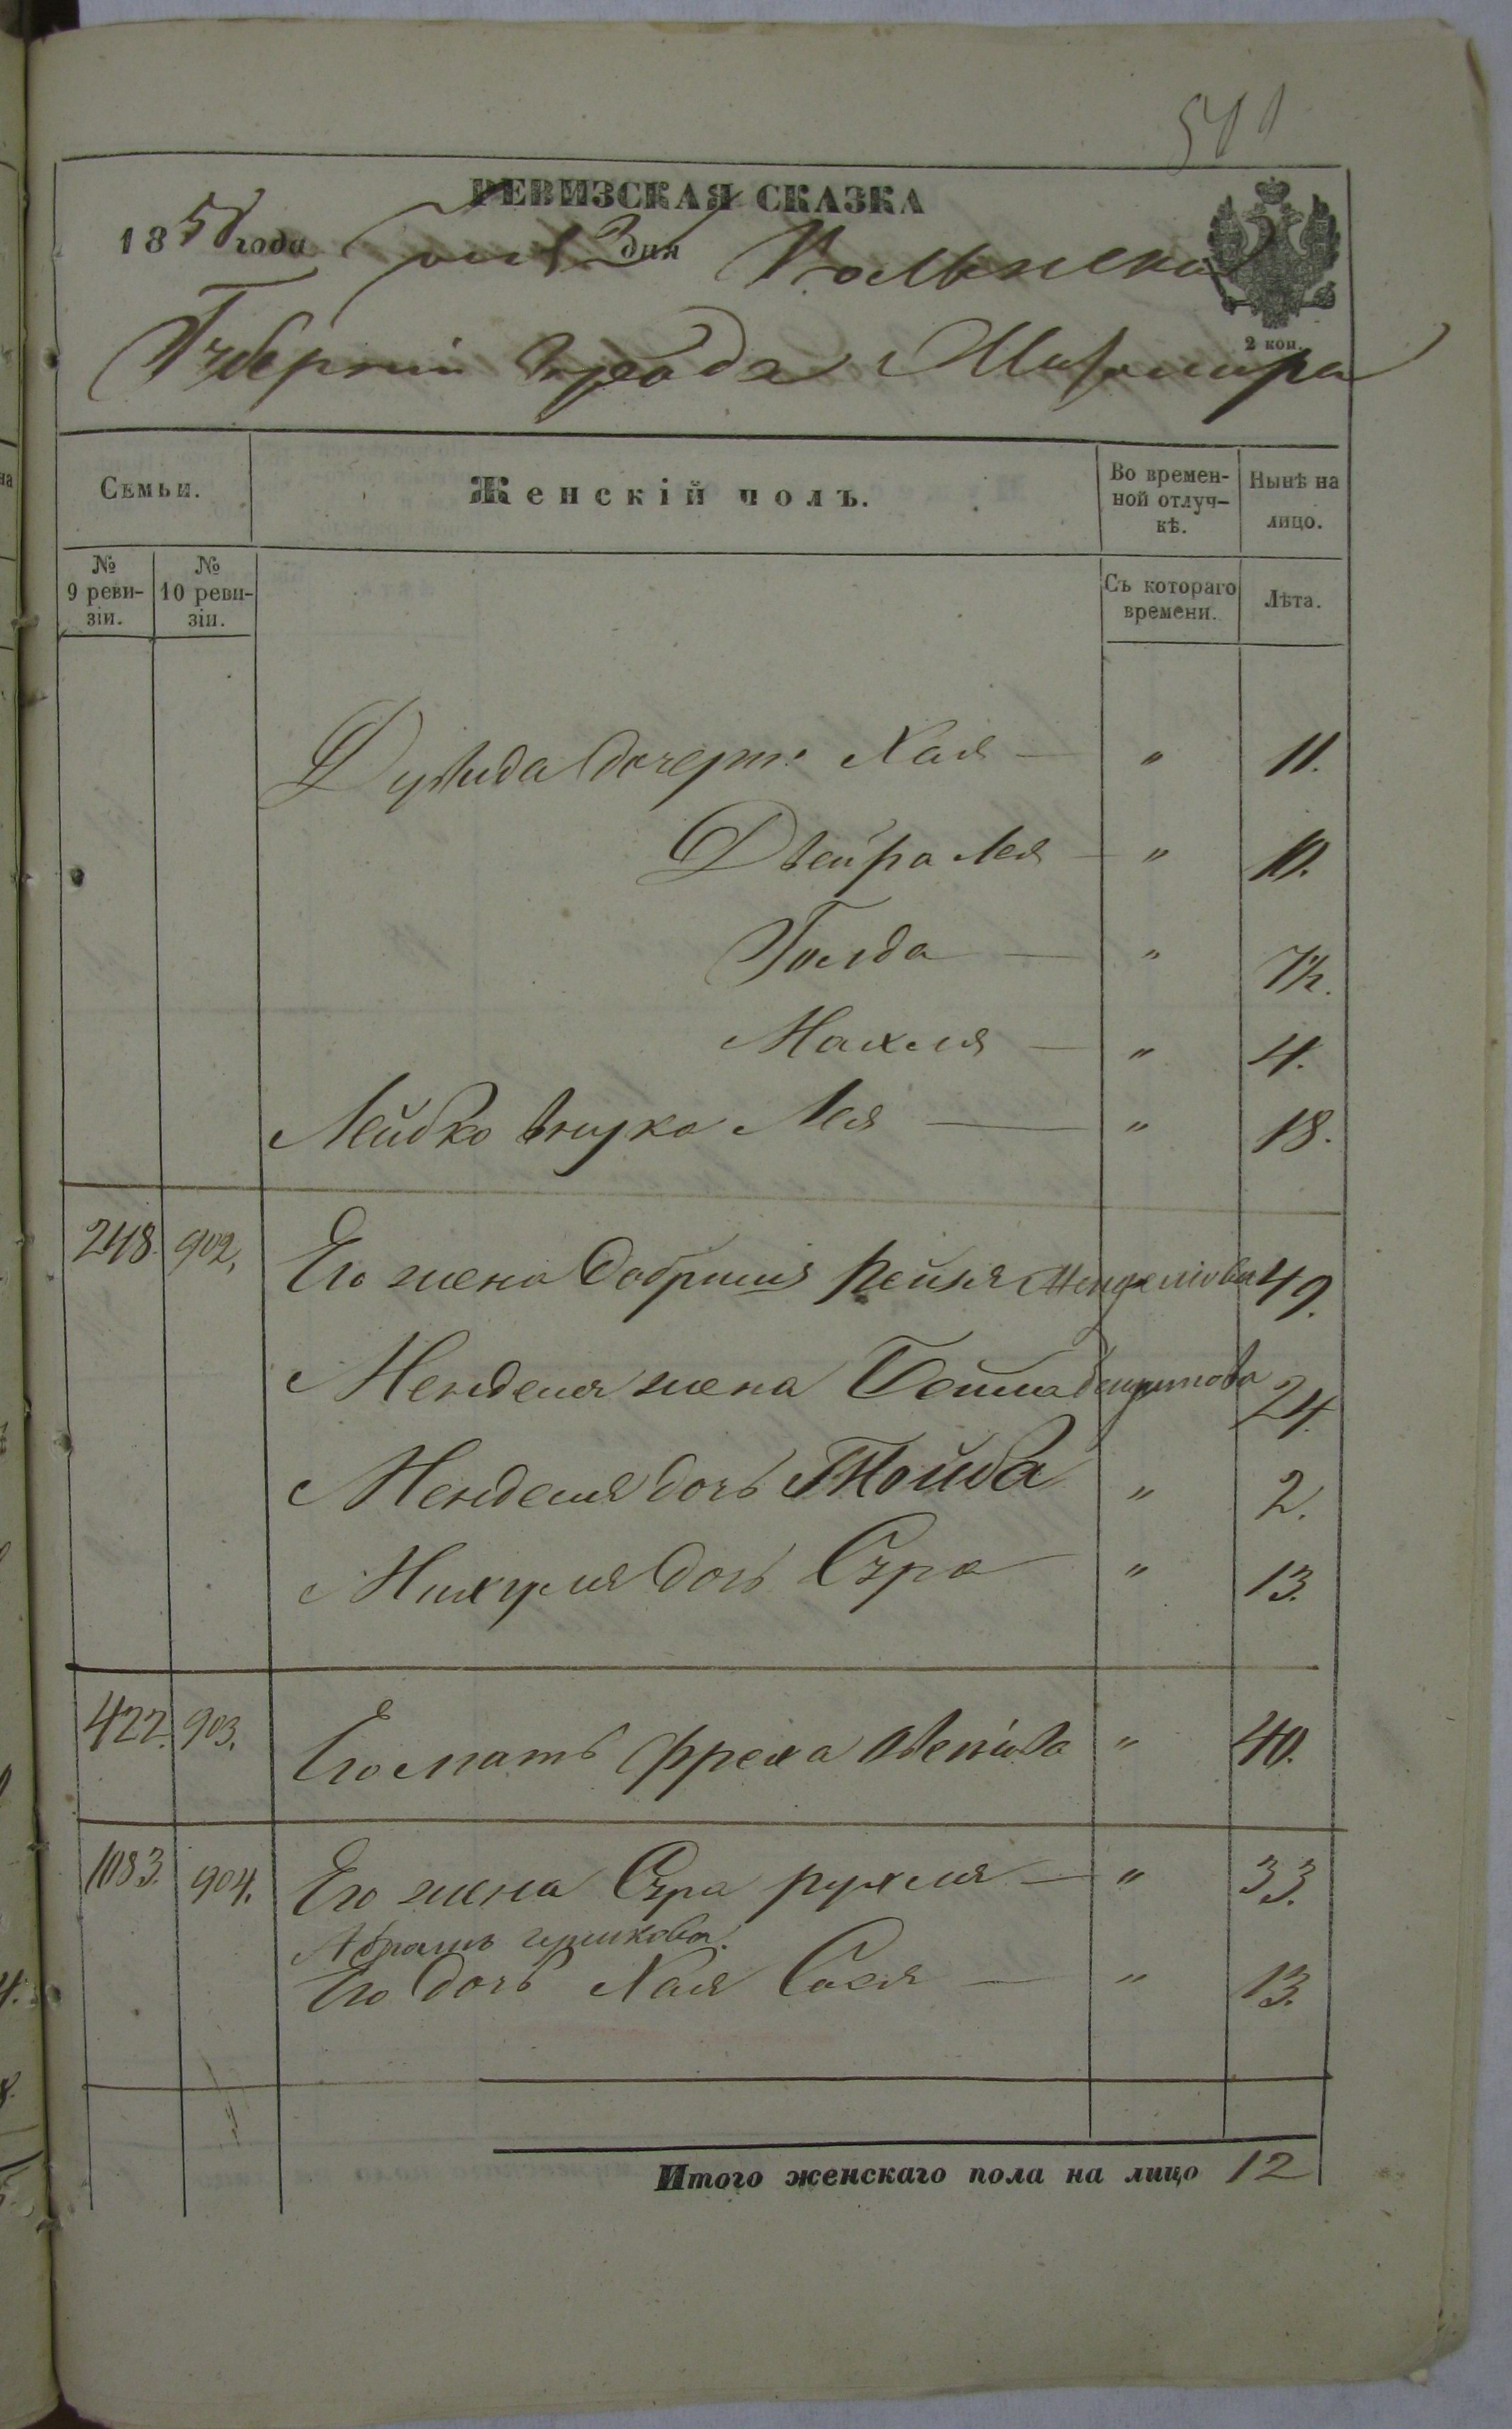 541
РЕВИЗСКАЯ СКАЗКА
1858 года Мая 3 дня Волынской
2 коп.
Губерніи Города Житомира
Семьи.
Женскій полъ.
Во времен-
ной отлуч-
кѣ.
Нынѣ на
лицо.
№
9 реви-
зіи.
№
10 реви-
зіи.
Съ котораго
времени.
Лѣта.
Дувида дочери: Хая — " 11.
Двейра Лея — " 10.
Голда — " 7½.
Махля — " 4.
Лейбко внука Лея — " 18.
248. 902. Его жена Добриша Рейзя Менделіова 49.
Менделя жена Бейла 24.
Менделя дочь Тойба " 2.
Михуля дочь Сура " 13.
422. 903. Его мать Фрема " 40.
1083. 904. Его жена Сура рухля — " 33.
Абрамъ
Его дочь Хая Сося — " 13.
Итого женскаго пола на лицо 12